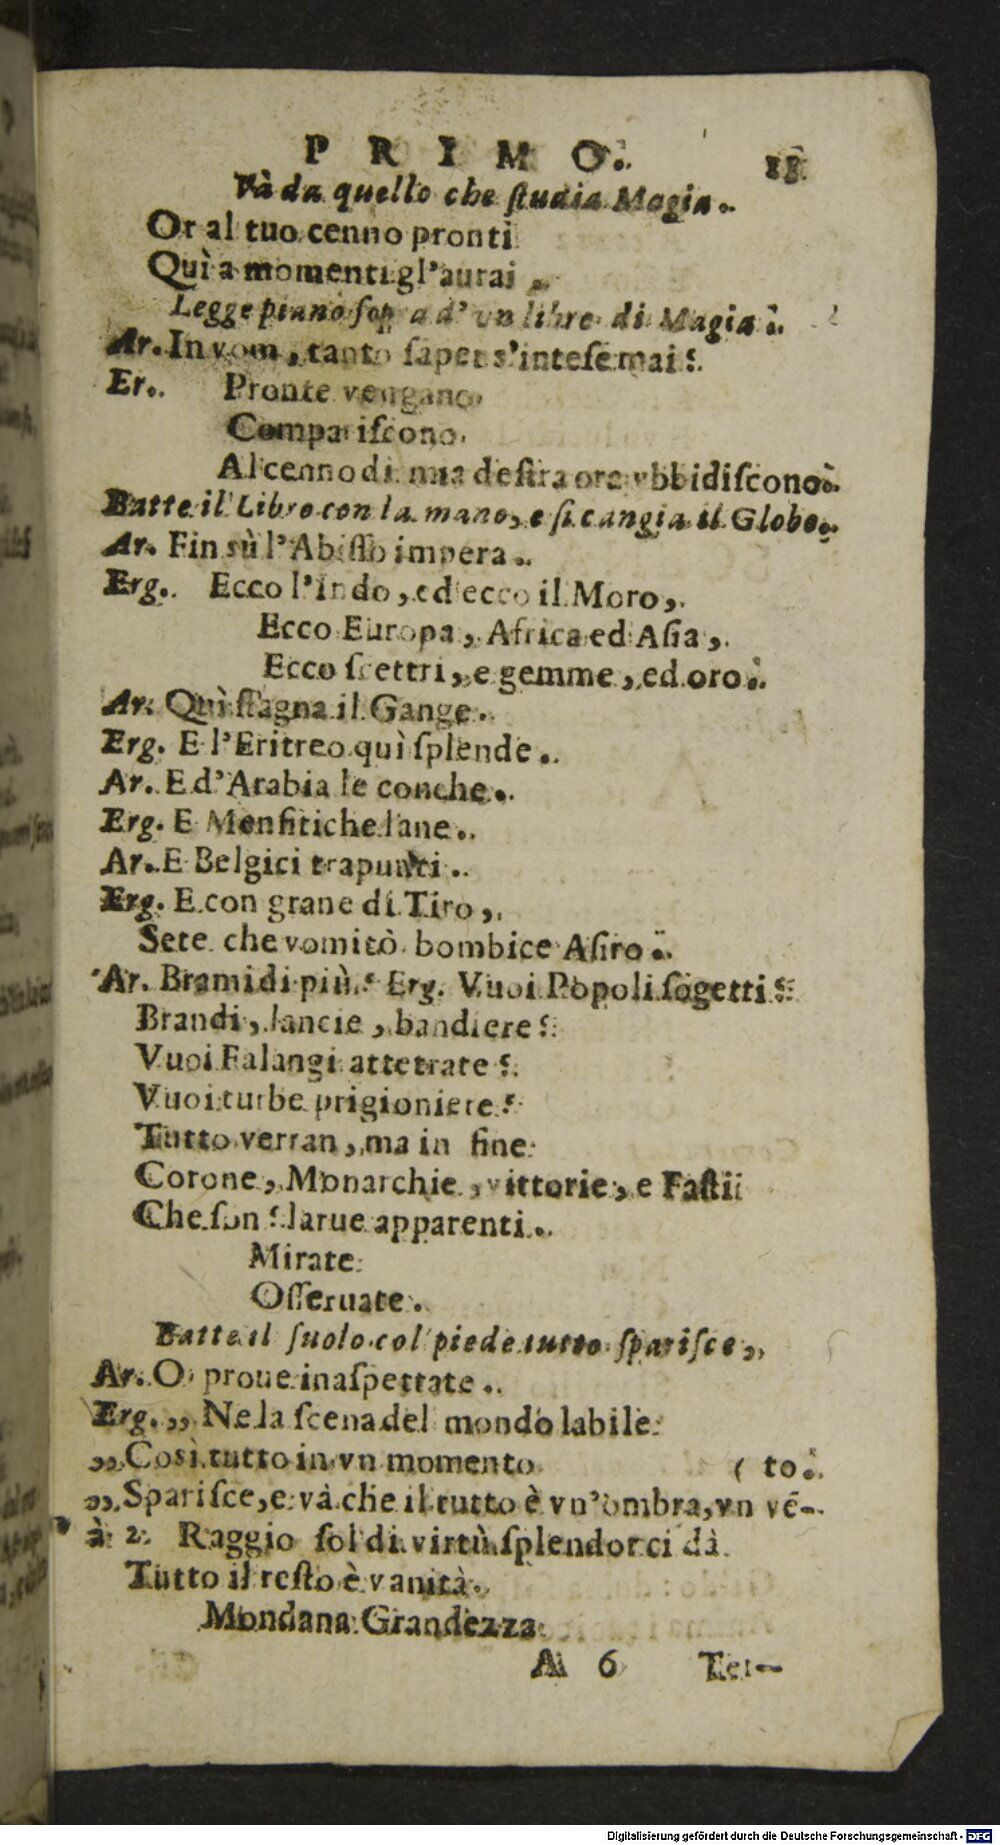 PRIMO.
Và da quello che ſtudia Magia.
Or al tuo cenno pronti
Quì a momenti gl'aurai.
Legge piano ſopra d'vn libro di Magia.
Ar. In vom, tanto ſaper s'inteſe mai?
Er. Pronte vengano
Compariſcono
Al cenno di mia deſtra ora vbbidiſcono.
Batte il Libro con la mano, e ſi cangia il Globo.
Ar. Fin sù l'Abiſſo impera.
Erg. Ecco l'Indo, ed ecco il Moro,
Ecco Europa, Africa ed Aſia,
Ecco ſcettri, e gemme, ed oro.
Ar. Quì ſtagna il Gange.
Erg. E l'Eritreo quì ſplende.
Ar. E d'Arabia le conche.
Erg. E Menfitiche lane.
Ar. E Belgici trapunti.
Erg. E con grane di Tiro,
Sete che vomitò bombice Aſiro.
Ar. Brami di più? Erg. Vuoi Popoli ſogetti?
Brandi, lancie, bandiere?
Vuoi Falangi atterrate?
Vuoi turbe prigioniere?
Tutto verran, ma in fine
Corone, Monarchie, vittorie, e Faſti
Che ſon? larue apparenti.
Mirate
Oſſeruate.
Batte il ſuolo col piede tutto ſpariſce,
Ar. O proue inaſpettate.
Erg. ,, Ne la ſcena del mondo labile
,, Così tutto in vn momento (to.
,, Spariſce, e và che il tutto è vn'ombra, vn vē-
à 2. Raggio ſol di virtù ſplendor ci dà
Tutto il reſto è vanità.
Mondana Grandezza
A 6 Ter-
Digitalisierung gefördert durch die Deutsche Forschungsgemeinschaft - DFG